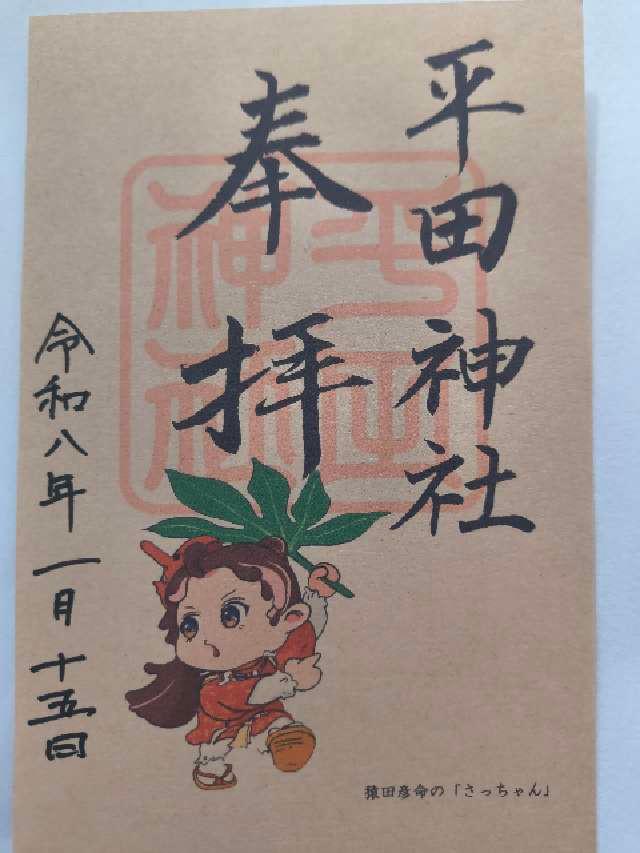 平田神社
奉拝
平田
神社
令和八年一月十五日
猿田彦命の「さっちゃん」